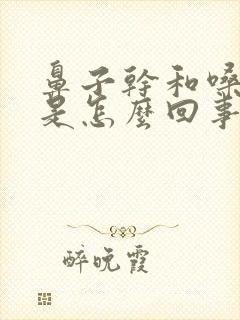 鼻子幹和嗓
是怎麼回事
醉晚霞